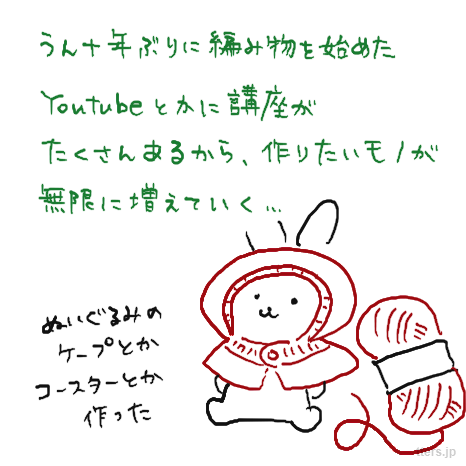 うん十年ぶりに編み物を始めた
Youtubeとかに講座が
たくさんあるから、作りたいモノが
無限に増えていく…
ぬいぐるみの
ケープとか
コースターとか
作った